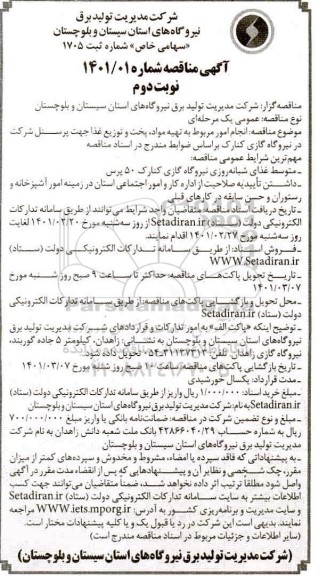 شرکت مدیریت تولید برق
نیروگاه‌های استان سیستان و بلوچستان
«سهامی خاص» شماره ثبت ۱۷۰۵
آگهی مناقصه شماره ۱۴۰۱/۰۱
نوبت دوم
مناقصه‌گزار: شرکت مدیریت تولید برق نیروگاه‌های استان سیستان و بلوچستان
نوع مناقصه: عمومی یک مرحله‌ای
موضوع مناقصه: انجام امور مربوط به تهیه مواد، پخت و توزیع غذا جهت پرسنل شرکت
در نیروگاه گازی کنارک براساس ضوابط مندرج در اسناد مناقصه
مهم‌ترین شرایط عمومی مناقصه:
ـ متوسط غذای شبانه‌روزی نیروگاه گازی کنارک ۵۰ پرس
ـ داشتن تأییدیه صلاحیت از اداره کار و امور اجتماعی استان در زمینه امور آشپزخانه و
رستوران و حسن سابقه در کارهای قبلی
ـ تاریخ دریافت اسناد مناقصه: متقاضیان واجد شرایط می‌توانند از طریق سامانه تدارکات
الکترونیکی دولت (ستاد) Setadiran.ir از روز سه‌شنبه مورخ ۱۴۰۱/۰۲/۲۰ لغایت
روز سه‌شنبه مورخ ۱۴۰۱/۰۲/۲۷ اقدام نمایند.
ـ فروش اسناد: از طریق سامانه تدارکات الکترونیکی دولت (ستاد)
WWW.Setadiran.ir
ـ تاریخ تحویل پاکت‌های مناقصه: حداکثر تا ساعت ۹ صبح روز شنبه مورخ
۱۴۰۱/۰۳/۰۷
ـ محل تحویل و بازگشایی پاکت‌های مناقصه: از طریق سامانه تدارکات الکترونیکی
دولت (ستاد) Setadiran.ir
ـ توضیح اینکه «پاکت الف» به امور تدارکات و قراردادهای شرکت مدیریت تولید برق
نیروگاه‌های استان سیستان و بلوچستان به نشانی: زاهدان، کیلومتر ۵ جاده گوربند،
نیروگاه گازی زاهدان تلفن: ۳۱۱۳۷۳۱۳-۰۵۴ تحویل داده شود.
ـ تاریخ بازگشایی پاکت‌های مناقصه: ساعت ۱۰ صبح روز شنبه مورخ ۱۴۰۱/۰۳/۰۷
ـ مدت قرارداد: یکسال خورشیدی
ـ مبلغ خرید اسناد: ۱/۰۰۰/۰۰۰ ریال واریز از طریق سامانه تدارکات الکترونیکی دولت (ستاد)
Setadiran.ir به نام: شرکت مدیریت تولید برق نیروگاه‌های استان سیستان و بلوچستان
ـ مبلغ و نوع تضمین شرکت در مناقصه: ضمانت‌نامه بانکی یا واریز مبلغ ۷۰۰/۰۰۰/۰۰۰
ریال به شماره حساب ۴۲۸۶۶۰۴۰/۲۹ بانک ملت شعبه دانش زاهدان به نام شرکت
مدیریت تولید برق نیروگاه‌های استان سیستان و بلوچستان
ـ به پیشنهاداتی که فاقد سپرده یا امضاء، مشروط و مخدوش و سپرده‌های کمتر از میزان
مقرر، چک شخصی و نظایر آن و پیشنهادهایی که پس از انقضاء مدت مقرر در آگهی
واصل شود مطلقاً ترتیب اثر داده نخواهد شد، ضمناً متقاضیان می‌توانند جهت کسب
اطلاعات بیشتر به سایت سامانه تدارکات الکترونیکی دولت (ستاد) Setadiran.ir
و سایت مدیریت و برنامه‌ریزی کشور به آدرس: WWW.iets.mporg.ir مراجعه
نمایند. بدیهی است این شرکت در رد یا قبول یک و یا کلیه پیشنهادات مختار است.
(سایر اطلاعات و جزئیات مربوط در اسناد مناقصه مندرج است)
(شرکت مدیریت تولید برق نیروگاه‌های استان سیستان و بلوچستان)